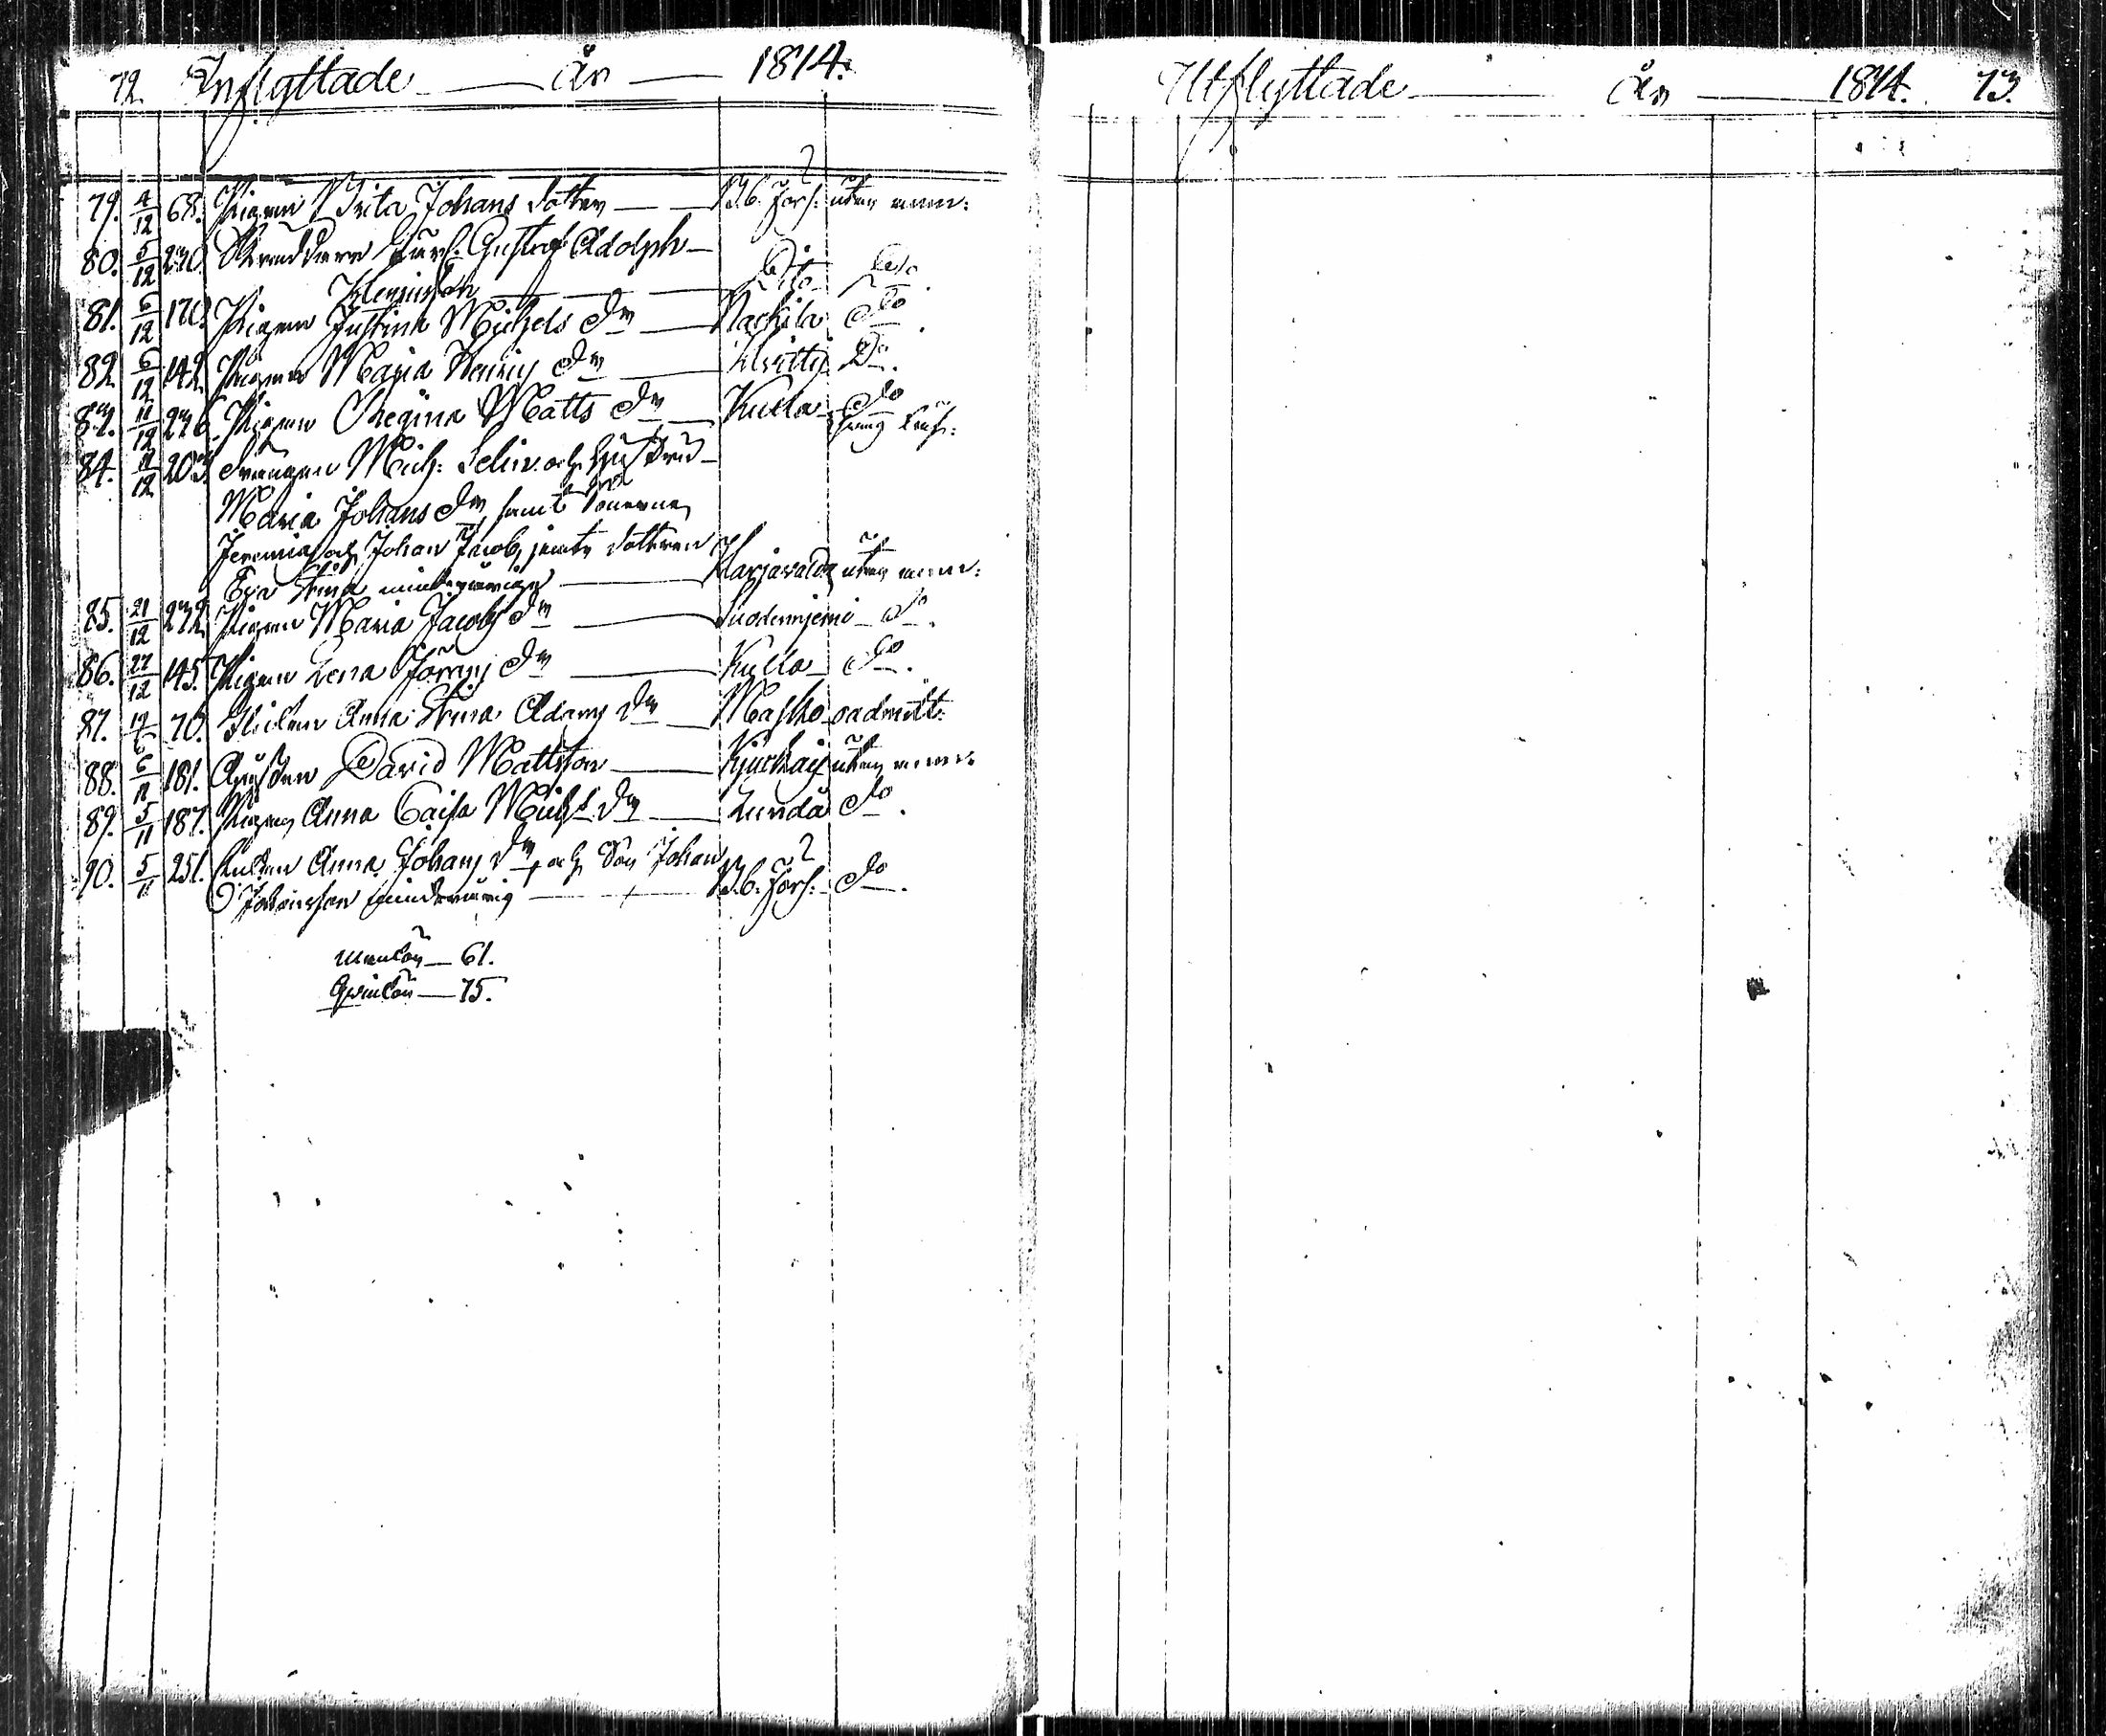 72. Inflyttade — År — 1814.
79. 4/12 68. Pigan Brita Johans dotter — B.b. Förs: utan anm:
80. 5/12 230. Skräddare Gustaf Adolph —
81. 6/12 170. Pigan Justina Michels dr — Nackila do.
82. 6/12 142. Pigan Maria Henrics dr — Kivitty Do.
83. 11/12 236. Pigan Regina Matts dr — Kulla do
84. 11/12 203. Drängen Mich: Selin och Hustru —
Maria Johans dr samt Sönerne
Jeremias och Johan Jacob, jemte dotteren
Eva Stina minderårige — Harjavalda utan anm:
85. 21/12 232. Pigan Maria Jacobs dr — Suodenniemi do.
86. 27/12 145. Pigan Lena Görans dr — Kulla do.
87. 70. Flickan Anna Stina Adams dr — Masko oadmitt:
88. 6/11 181. David Mattsson — utan anm:
89. 5/11 187. Pigan Anna Caisa Mich:s dr — Lunda do.
90. 5/11 251. Enkan Anna Johans dr, och Son Johan
Johansson minderårig — B.b. Förs: do.
Mankön — 61.
Qvinkön — 75.
Utflyttade — År — 1814. 73.